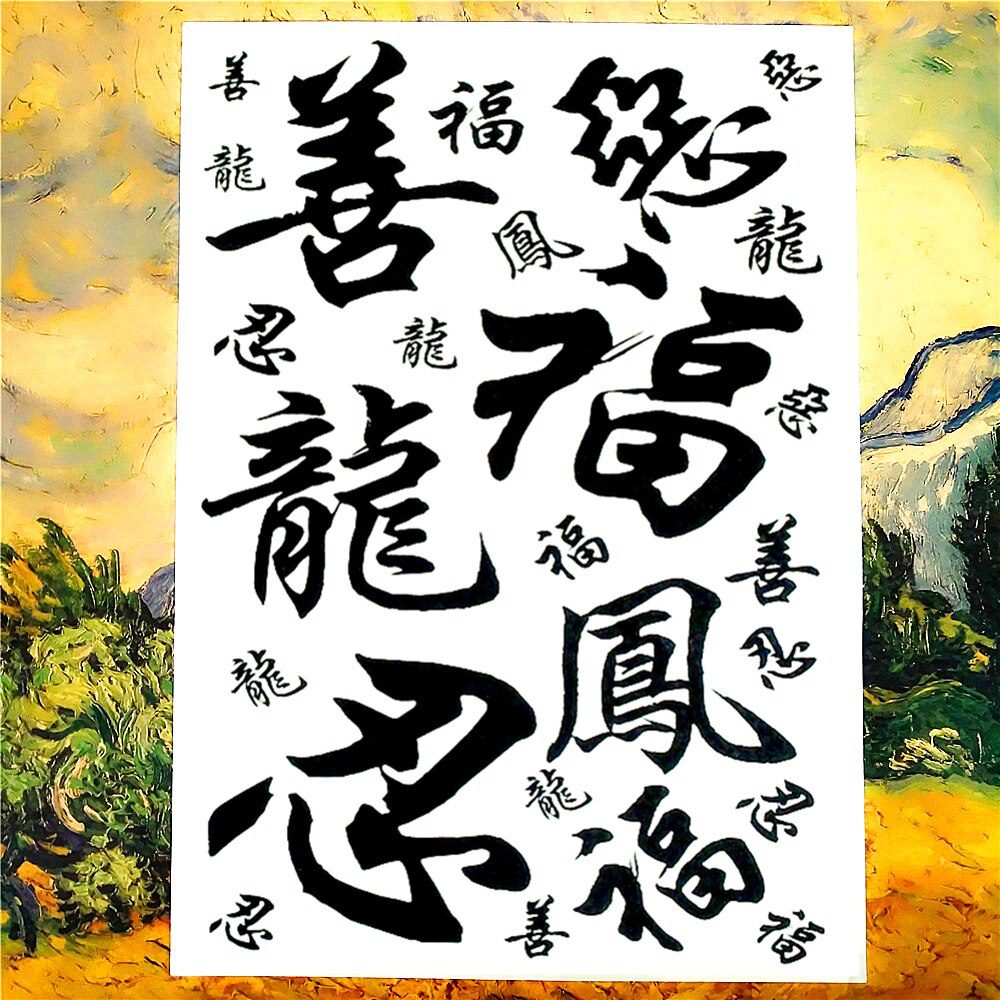 善
善
福
龍
鳳
龍
忍
龍
福
龍
福
善
鳳
忍
龍
忍
龍
福
忍
忍
善
福